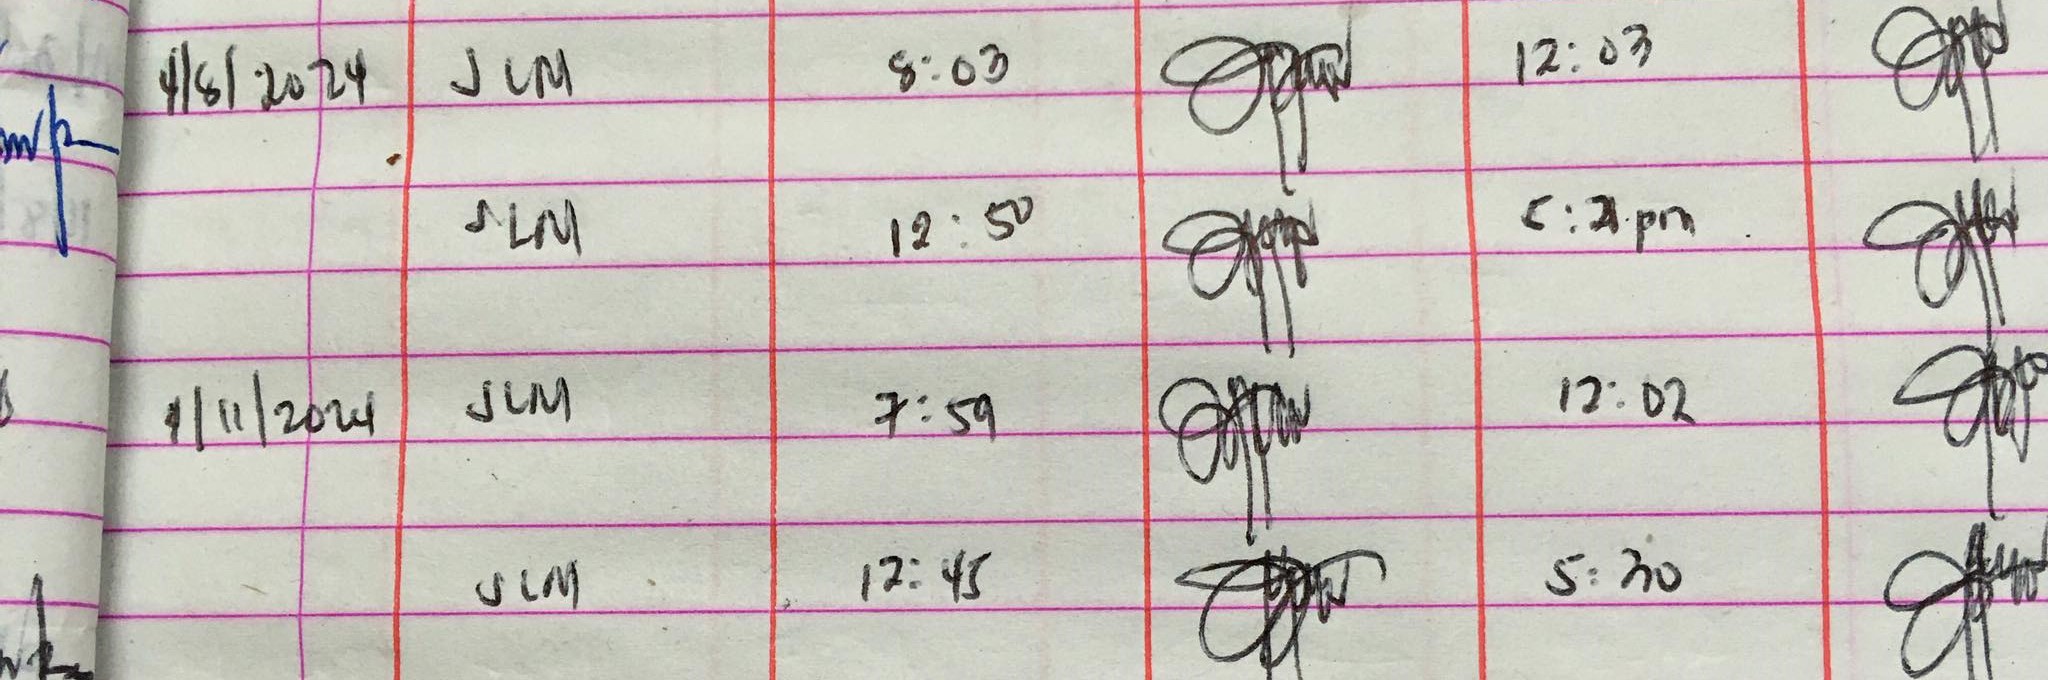 4/8/2024 JLM 8:03 12:03
JLM 12:50 5:21 pm
4/11/2024 JLM 7:59 12:02
JLM 12:45 5:30